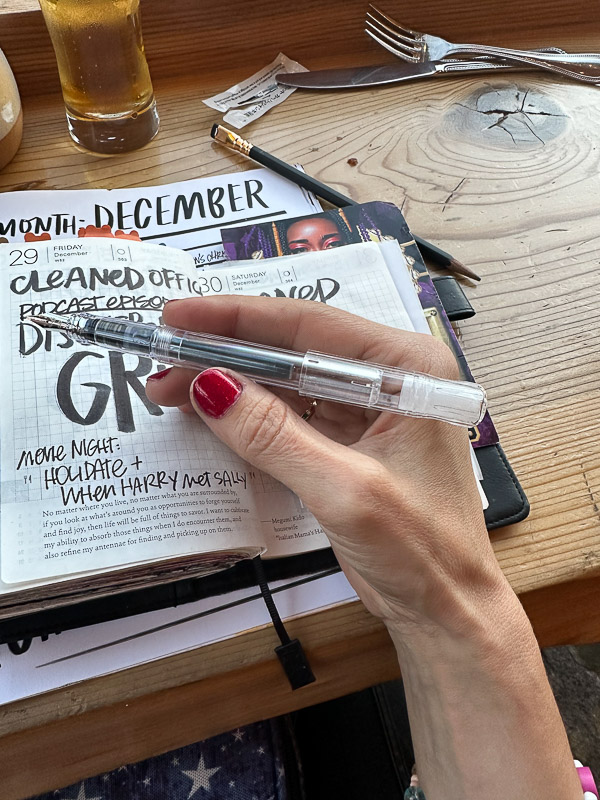 MONTH: DECEMBER
29 FRIDAY
December
30 SATURDAY
December
CLEANED OFFIC
PODCAST EPISOD
GR
MOVIE NIGHT:
"HOLIDATE +
WHEN HARRY MET SALLY"
No matter where you live, no matter what you are surrounded by,
if you look at what's around you as opportunities to forge yourself
and find joy, then life will be full of things to savor. I want to cultivate
my ability to absorb those things when I do encounter them, and
also refine my antennae for finding and picking up on them.
Megumi Kido
housewife
"Italian Mama's Ha